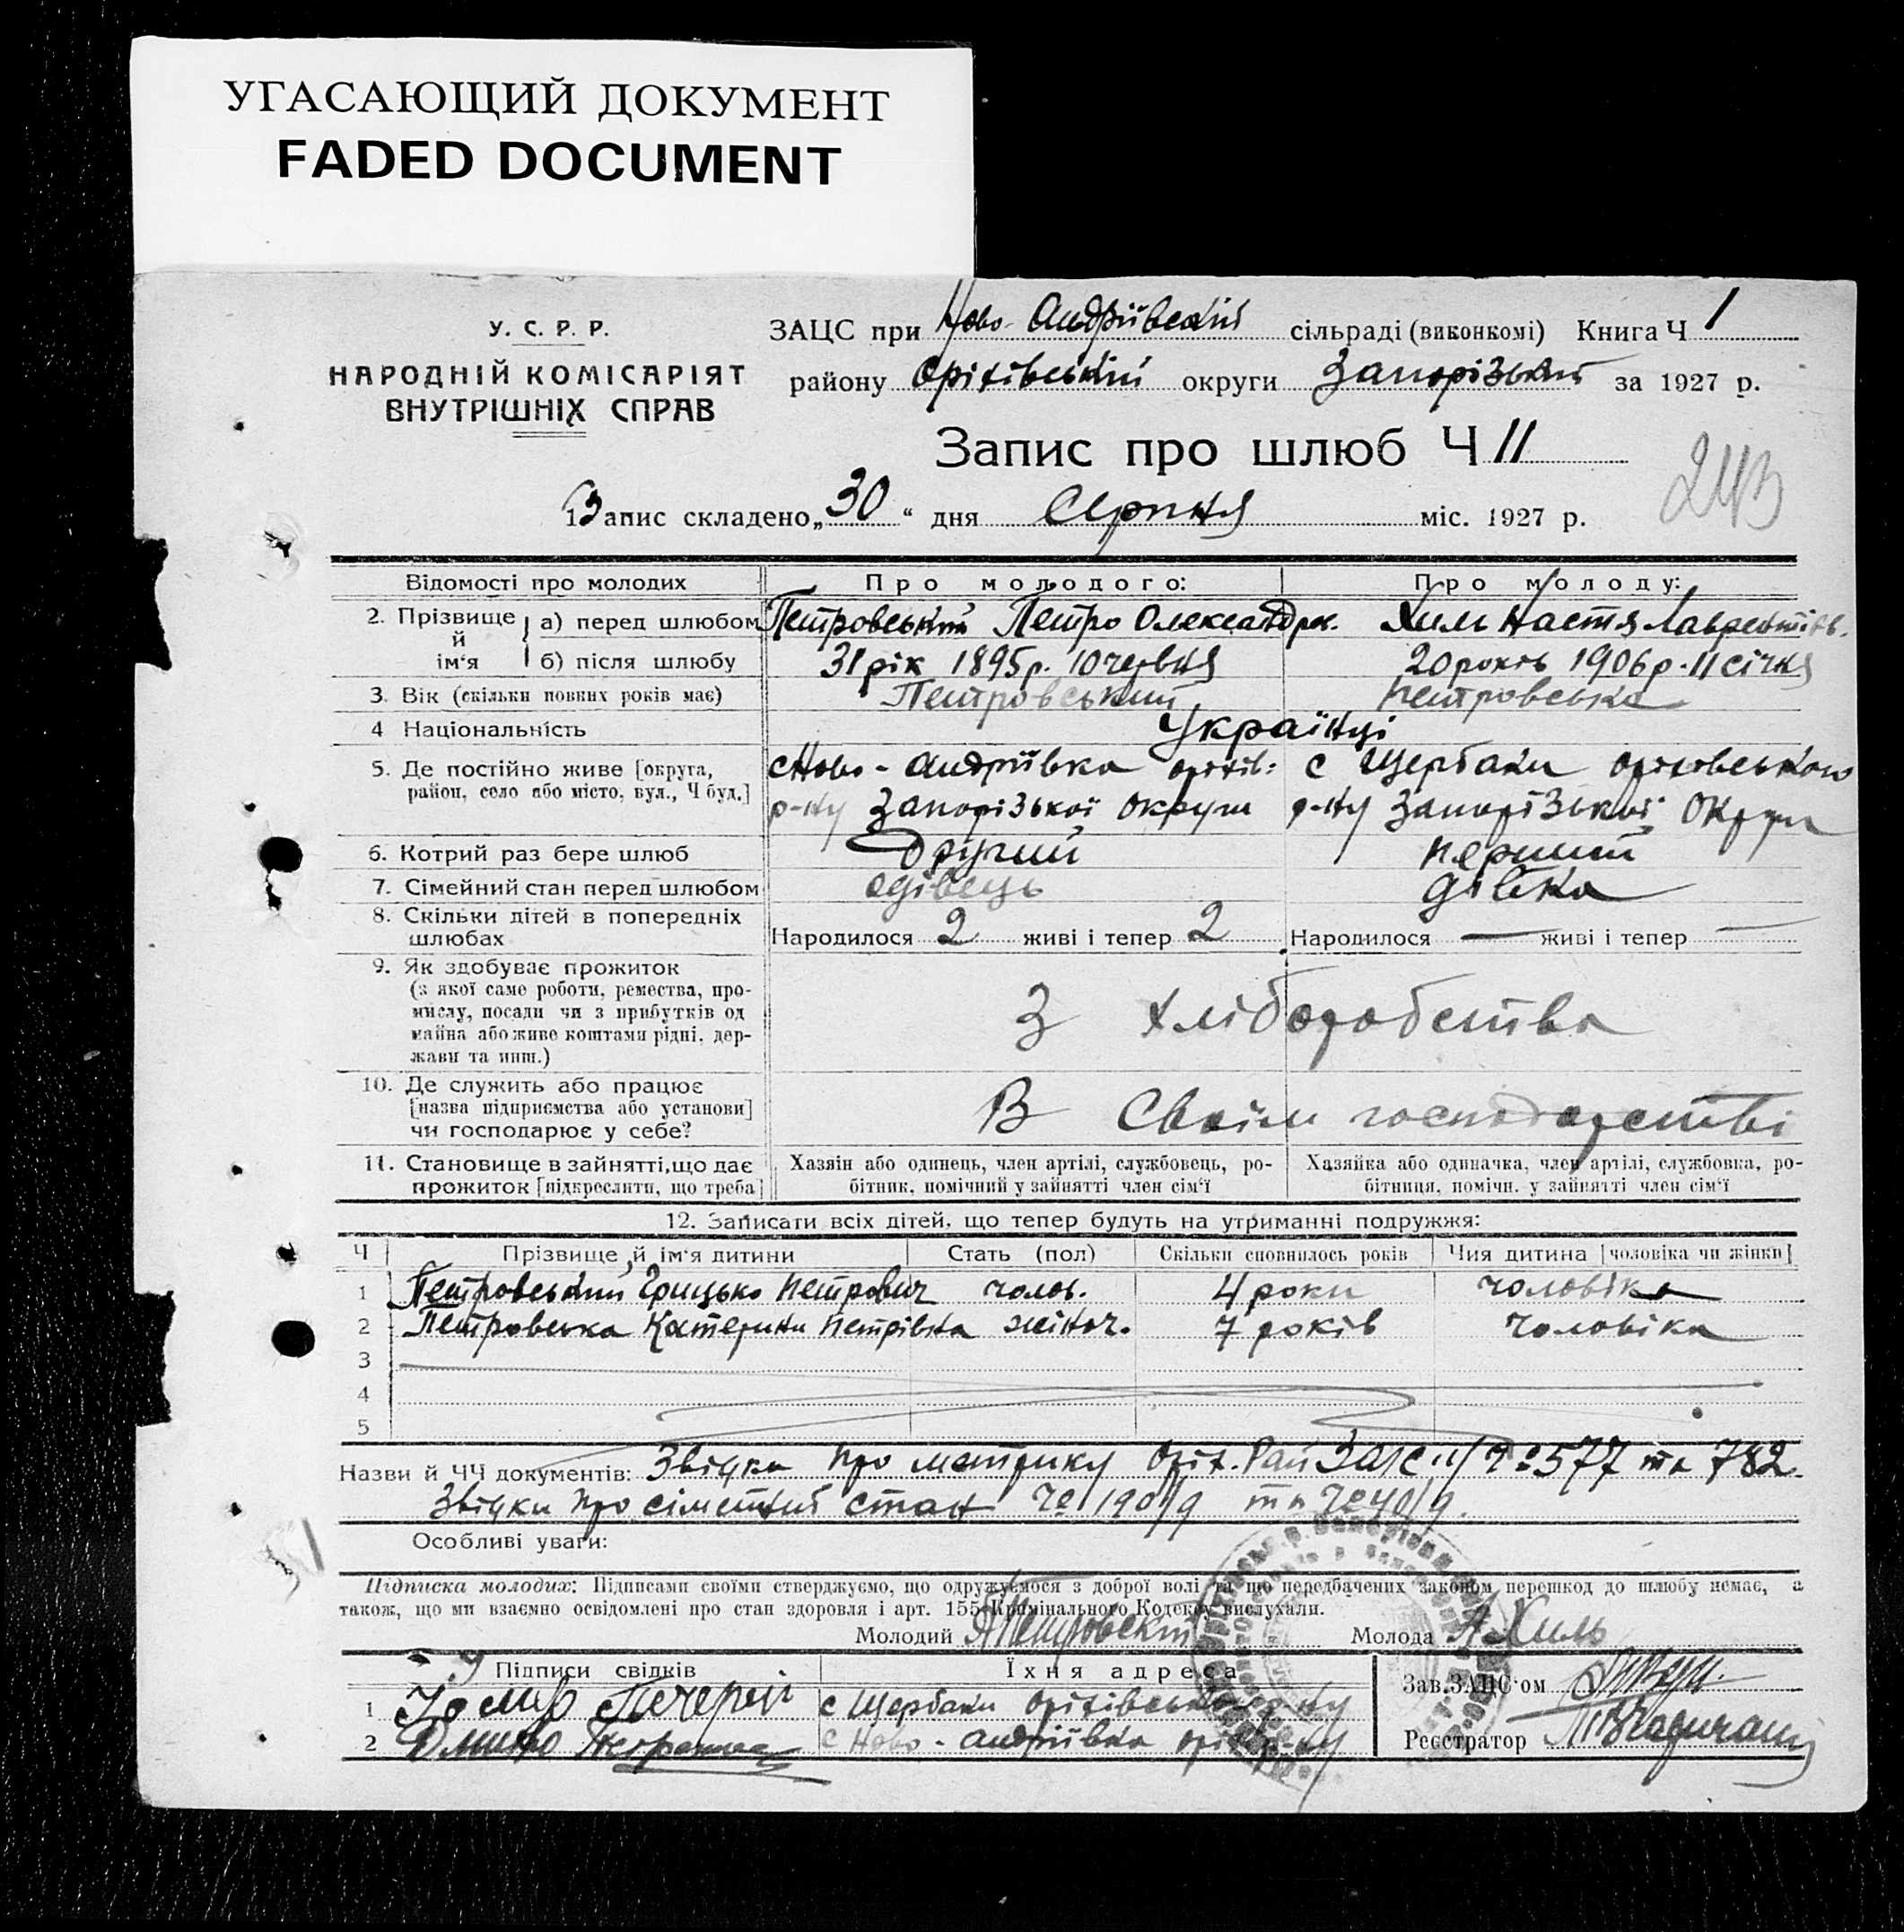 УГАСАЮЩИЙ ДОКУМЕНТ
FADED DOCUMENT
У. С. Р. Р.
НАРОДНІЙ КОМІСАРІЯТ
ВНУТРІШНІХ СПРАВ
ЗАЦС при Ново-Андріївскій сільраді (виконкомі) Книга Ч 1
району Оріхівський округи Запорізький за 1927 р.
Запис про шлюб Ч 11
243
Запис складено „30“ дня Серпня міс. 1927 р.
Відомості про молодих Про молодого: Про молоду:
2. Прізвище й ім'я а) перед шлюбом Петровський Петро Олександров. Хиль Настя Лаврентіів.
б) після шлюбу 31 рік 1895 р. 10 червня 20 років 1906 р. 11 січня
3. Вік (скільки повних років має) Петровський Петровська
4 Національність Українці
5. Де постійно живе [округа, район, село або місто, вул., Ч буд.]
с Ново-Андріівка оріхів: с Щербаки оріховського
р-ну Запорізької округи р-ну Запорізької округи
6. Котрий раз бере шлюб Другий перший
7. Сімейний стан перед шлюбом одівець дівка
8. Скільки дітей в попередніх шлюбах
Народилося 2 живі і тепер 2 Народилося — живі і тепер —
9. Як здобуває прожиток
(з якої саме роботи, ремества, про-
мислу, посади чи з прибутків од
майна або живе коштами рідні, дер-
жави та инш.)
З хліборобства
10. Де служить або працює
[назва підприємства або установи]
чи господарює у себе?
В своїм господарстві
11. Становище в зайнятті, що дає
прожиток [підкреслити, що треба]
Хазяїн або одинець, член артілі, службовець, ро-
бітник, помічний у зайнятті член сім'ї
Хазяйка або одиначка, член артілі, службовка, ро-
бітниця, помічн. у зайнятті член сім'ї
12. Записати всіх дітей, що тепер будуть на утриманні подружжя:
Ч Прізвище й ім'я дитини Стать (пол) Скільки сповнилось років Чия дитина [чоловіка чи жінки]
1 Петровський Грицько Петрович чолов. 4 роки чоловіка
2 Петровська Катерина Петрівна жіноч. 7 років чоловіка
3
4
5
Назви й ЧЧ документів: Звідки про метрику Оріх. Рай ЗАГС 577 та 782.
Звідки про сімейний стан
Особливі уваги:
Підписка молодих: Підписами своїми стверджуємо, що одружуємося з доброї волі та що передбачених законом перешкод до шлюбу немає, а
також, що ми взаємно освідомлені про стан здоровля і арт. 155 Кримінального Кодексу вислухали.
Молодий Петровский Молода А Хиль
Підписи свідків Їхня адреса
1 с Щербаки оріхівського р-ну
2 Дмитро с Ново-Андріївка оріх. р-ну
Зав. ЗАЦС'ом
Реєстратор